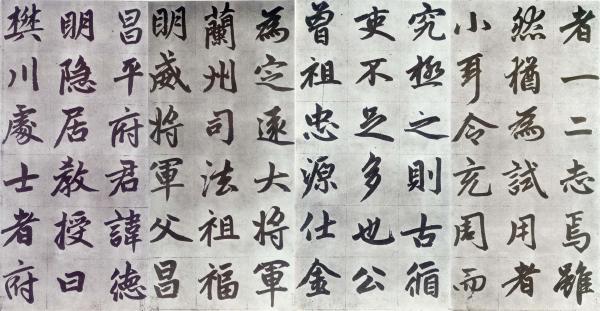 者一二志焉雖
然猶為試用者
小耳令充周而
究極之則古循
吏不足多也公
曾祖忠源仕金
為定遠大將軍
蘭州司法祖福
眀威將軍父昌
昌平府君諱德
眀隐居教授曰
樊川處士者府